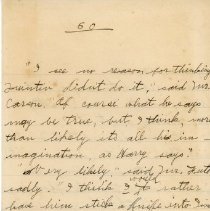 60
"I see no reason for thinking
didn't do it," said Mr.
Carson. "Of course what he says
may be true, but I think more
than likely it's all his im-
agination, as Harry says"
"Very likely," said Mr.
sadly. "I think I'd rather
have him stick a knife into